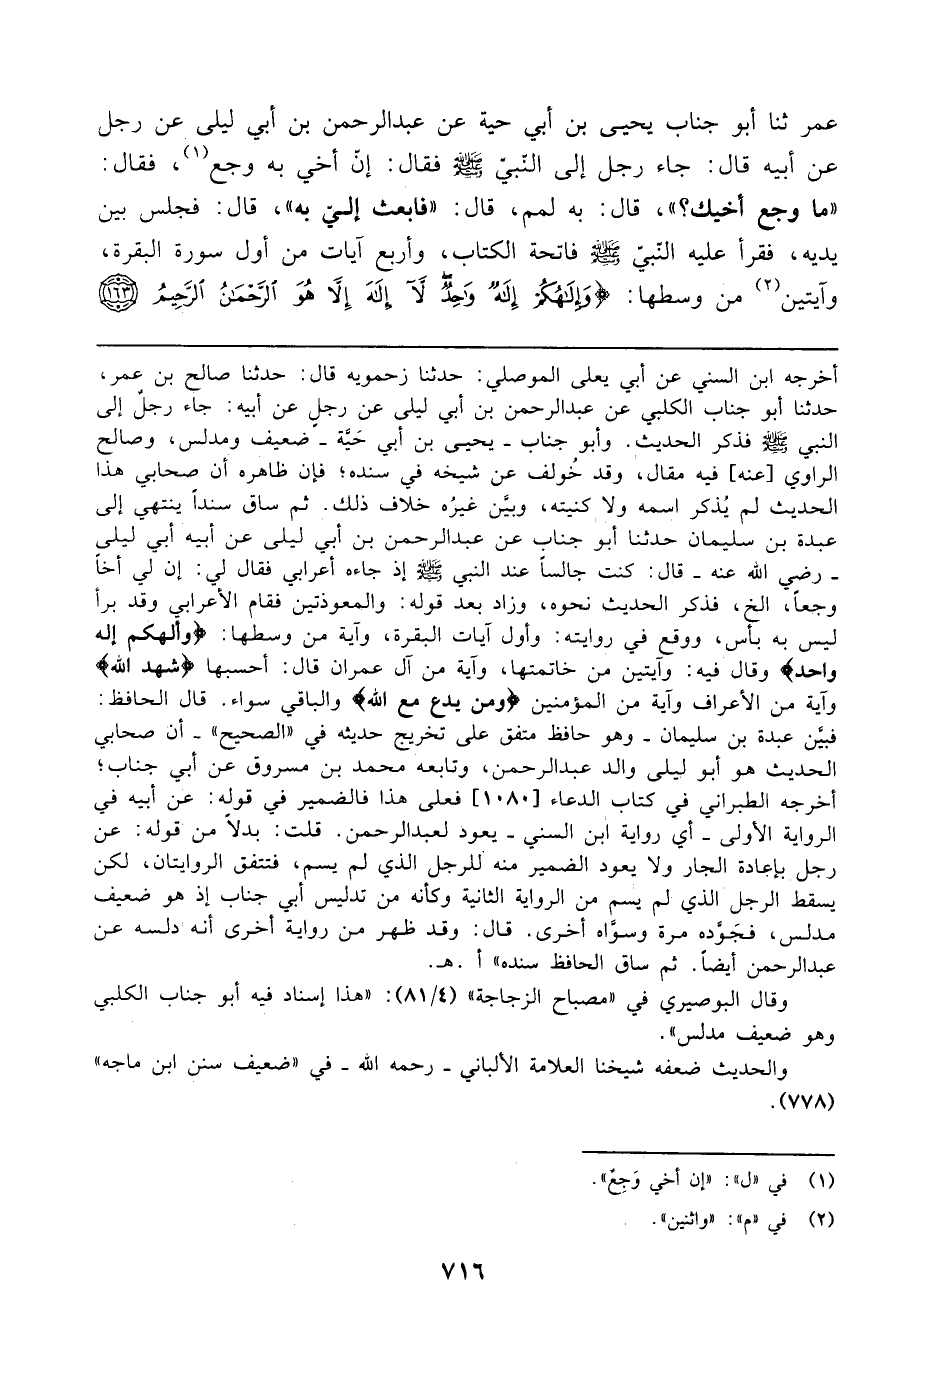 عمر ثنا أبو جناب يحيى بن أبي حية عن عبدالرحمن بن أبي ليلى عن رجل
عن أبيه قال: جاء رجل إلى النّبيّ ﷺ فقال: إنّ أخي به وجع(١)، فقال:
«ما وجع أخيك؟»، قال: به لمم، قال: «فابعث إليّ به»، قال: فجلس بين
يديه، فقرأ عليه النّبيّ ﷺ فاتحة الكتاب، وأربع آيات من أول سورة البقرة،
وآيتين(٢) من وسطها: ﴿وَإِلَٰهُكُمْ إِلَٰهٌ وَٰحِدٌ لَّآ إِلَٰهَ إِلَّا هُوَ ٱلرَّحْمَٰنُ ٱلرَّحِيمُ ١٦٣
أخرجه ابن السني عن أبي يعلى الموصلي: حدثنا زحمويه قال: حدثنا صالح بن عمر،
حدثنا أبو جناب الكلبي عن عبدالرحمن بن أبي ليلى عن رجلٍ عن أبيه: جاء رجلٌ إلى
النبي ﷺ فذكر الحديث. وأبو جناب ـ يحيى بن أبي حَيَّة ـ ضعيف ومدلس، وصالح
الراوي [عنه] فيه مقال، وقد خُولف عن شيخه في سنده؛ فإن ظاهره أن صحابي هذا
الحديث لم يُذكر اسمه ولا كنيته، وبيَّن غيرُه خلاف ذلك. ثم ساق سنداً ينتهي إلى
عبدة بن سليمان حدثنا أبو جناب عن عبدالرحمن بن أبي ليلى عن أبيه أبي ليلى
ـ رضي الله عنه ـ قال: كنت جالساً عند النبي ﷺ إذ جاءه أعرابي فقال لي: إن لي أخاً
وجعاً، الخ، فذكر الحديث نحوه، وزاد بعد قوله: والمعوذتين فقام الأعرابي وقد برأ
ليس به بأس، ووقع في روايته: وأول آيات البقرة، وآية من وسطها: ﴿وألهكم إله
واحد﴾ وقال فيه: وآيتين من خاتمتها، وآية من آل عمران قال: أحسبها ﴿شهد الله﴾
وآية من الأعراف وآية من المؤمنين ﴿ومن يدع مع الله﴾ والباقي سواء. قال الحافظ:
فبيَّن عبدة بن سليمان ـ وهو حافظ متفق على تخريج حديثه في «الصحيح» ـ أن صحابي
الحديث هو أبو ليلى والد عبدالرحمن، وتابعه محمد بن مسروق عن أبي جناب؛
أخرجه الطبراني في كتاب الدعاء [١٠٨٠] فعلى هذا فالضمير في قوله: عن أبيه في
الرواية الأولى ـ أي رواية ابن السني ـ يعود لعبدالرحمن. قلت: بدلاً من قوله: عن
رجل بإعادة الجار ولا يعود الضمير منه للرجل الذي لم يسم، فتتفق الروايتان، لكن
يسقط الرجل الذي لم يسم من الرواية الثانية وكأنه من تدليس أبي جناب إذ هو ضعيف
مدلس، فجَوَّده مرة وسوَّاه أخرى. قال: وقد ظهر من رواية أخرى أنه دلسه عن
عبدالرحمن أيضاً. ثم ساق الحافظ سنده» أ .هـ.
وقال البوصيري في «مصباح الزجاجة» (٨١/٤): «هذا إسناد فيه أبو جناب الكلبي
وهو ضعيف مدلس».
والحديث ضعفه شيخنا العلامة الألباني ـ رحمه الله ـ في «ضعيف سنن ابن ماجه»
(٧٧٨).
(١) في «ل»: «إن أخي وَجِعٌ».
(٢) في «م»: «واثنين».
٧١٦